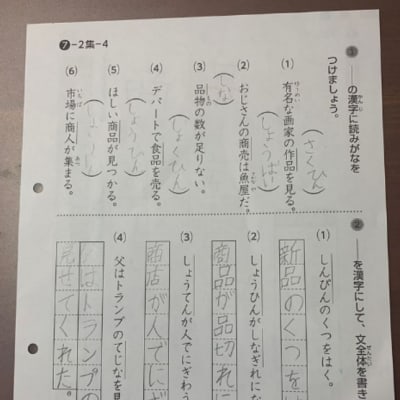 ❼-2集-4
1 ――の漢字に読みがなを
つけましょう。
(1) 有名な画家の作品を見る。
(さくひん)
(2) おじさんの商売は魚屋だ。
(しょうばい)
(3) 品物の数が足りない。
(しな)
(4) デパートで食品を売る。
(しょくひん)
(5) ほしい商品が見つかる。
(しょうひん)
(6) 市場に商人が集まる。
2 ――を漢字にして、文全体を書き
(1) しんぴんのくつをはく。
新品のくつを
(2) しょうひんがしなぎれにな
商品が品切れに
(3) しょうてんが人でにぎわう
商店が人でにぎ
(4) 父はトランプのてじなを見
父はトランプの
見せてくれた。